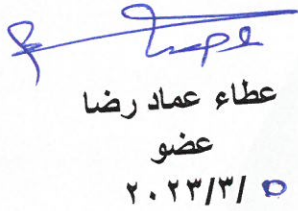 عطاء عماد رضا
عضو
٢٠٢٣/٣/٥